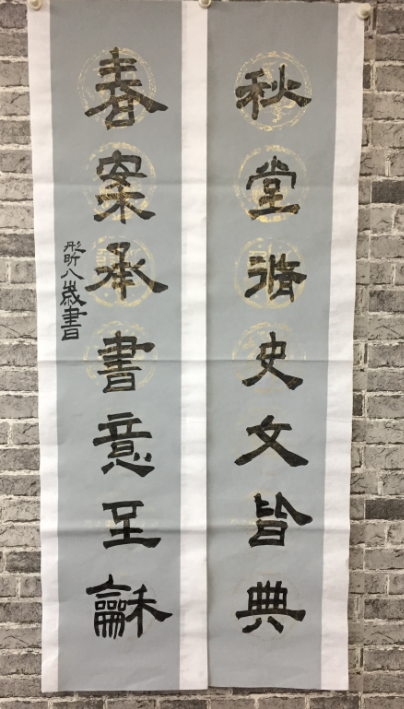 秋堂脩史文皆典
春案承書意至龢
彤昕八歲書